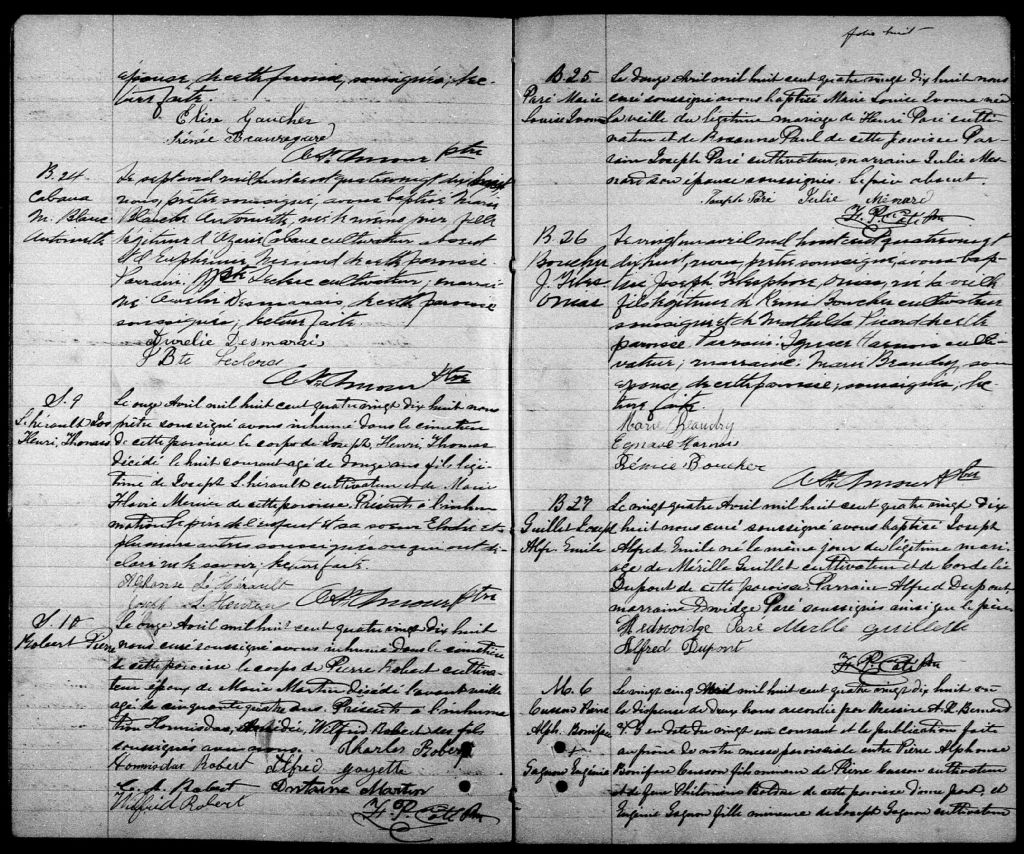 épouse, de cette paroisse, soussignés; lec-
ture faite.
Elise Gaucher
Irénée Beauregard
A. St. Amour Ptre
B. 24.
Cabana
M. Blanc
Antoinette
Le sept avril mil huit cent quatre vingt dix huit
nous, prêtre soussigné, avons baptisé Marie
Blanche Antoinette, née le même jour, fille
légitime d'Azarie Cabana cultivateur absent
et d'Euphémie Ménard de cette paroisse.
Parrain, Leclerc cultivateur; marrai-
ne, Aurélie Desmarais, de cette paroisse
soussignés; lecture faite.
Aurélie Desmarais
J Bte Leclerc
A. St. Amour Ptre
S. 9
L'hérault Jos
Henri, Thomas
Le onze Avril mil huit cent quatre vingt dix huit nous
prêtre soussigné avons inhumé dans le cimetière
de cette paroisse le corps de Joseph, Henri, Thomas
décédé le huit courant agé de douze ans fils légi-
time de Joseph L'hérault cultivateur et de Marie
Flavie Meunier de cette paroisse. Présents à l'inhu-
mation le père de l'enfant et sa soeur et
plusieurs autres soussignés ou qui ont dé-
claré ne le savoir: lecture faite.
Alphonse L'Hérault
Joseph L'Hérault
A. St. Amour Ptre
S. 10
Robert Pierre
Le onze Avril mil huit cent quatre vingt dix huit
nous curé soussigné avons inhumé dans le cimetière
de cette paroisse le corps de Pierre Robert cultiva-
teur époux de Marie Martin décédé l'avant veille
agé de cinquante quatre ans. Présents à l'inhuma-
tion Hormisdas, Wilfred Robert ses fils
soussignés avec nous. Charles Robert
Hormisdas Robert Alfred Goyette
Robert Antoine Martin
Wilfred Robert
F. P. Coté Ptre
folio huit
B. 25
Paré Marie
Louise Ivonne
Le douze Avril mil huit cent quatre vingt dix huit nous
curé soussigné avons baptisé Marie Louise Ivonne née
la veille du légitime mariage de Henri Paré culti-
vateur et de Rosanna Paul de cette paroisse Par-
rain Joseph Paré cultivateur, marraine Julie Mé-
nard son épouse soussignés. Le père absent.
Joseph Paré Julie Ménard
F. P. Coté Ptre
B 26
Boucher
J. Téles
Omer
Le vingt un avril mil huit cent quatre vingt
dix huit, nous, prêtre soussigné, avons bap-
tisé Joseph Télesphore Omer, né la veille
fils légitime de Rémi Boucher cultivateur
soussigné et de Mathilda Picard de cette
paroisse. Parrain: Ignace culti-
vateur; marraine: Marie Beaudry, son
épouse, de cette paroisse, soussignés; lec-
ture faite.
Marie Beaudry
Egnace
Rémie Boucher
A. St. Amour Ptre
B 27
Guillet Joseph
Alfr. Emile
Le vingt quatre Avril mil huit cent quatre vingt dix
huit nous curé soussigné avons baptisé Joseph
Alfred Emile né le même jour du légitime mari-
age de Mérille Guillet cultivateur et de Cordelie
Dupont de cette paroisse. Parrain Alfred Dupont,
marraine Edwidge Paré soussignés ainsi que le père
Hedwidge Paré Merille Guillette
Alfred Dupont
F. P. Coté Ptre
M. 6
Cusson Pierre
Alph. Boniface
+
Gagnon Eugénie
Le vingt cinq Avril mil huit cent quatre vingt dix huit vu
la dispense de deux bans accordée par Messire A. X. Bernard
V. G en date du vingt un courant et la publication faite
au prone de notre messe paroissiale entre Pierre Alphonse
Boniface Cusson fils mineur de Pierre Cusson cultivateur
et de feue Philomène de cette paroisse d'une part, et
Eugénie Gagnon fille mineure de Joseph Gagnon cultivateur